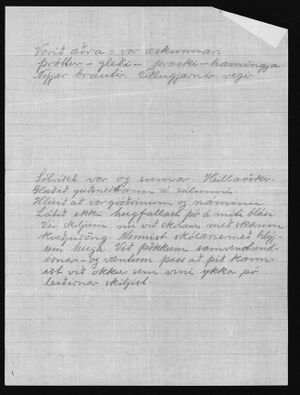 Vorið æðra = vor æskunnar.
þróttur - gleði - þroski - hamingja
Nýjar brautir. Villugjarnir vegir.
Sólríkt vor og sumar. Heillaóski.
Glæðið guðsneistann í sálunni.
Hlúið að vorgróðrinum og náminu
Látið ekki hugfallast þó á móti blási
Vér skiljum nú við skólann með
kveðjusöng. Minnist skólans með hlýj
um hug. Við þökkum samveru
- og væntum þess að þið
ist við okkur sem vini ykka þó
leiðirnar skiljist.